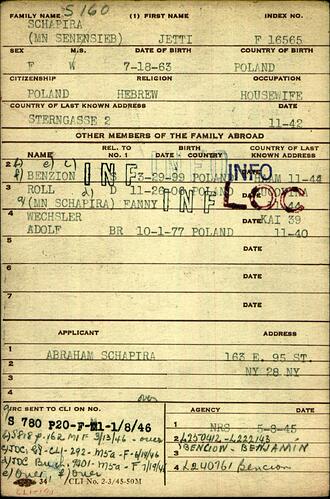 S 160
FAMILY NAME (1) FIRST NAME INDEX NO.
SCHAPIRA
(MN SENENSIEB) JETTI F 16565
SEX M.S. DATE OF BIRTH COUNTRY OF BIRTH
F W 7-18-63 POLAND
CITIZENSHIP RELIGION OCCUPATION
POLAND HEBREW HOUSEWIFE
COUNTRY OF LAST KNOWN ADDRESS DATE
STERNGASSE 2 11-42
OTHER MEMBERS OF THE FAMILY ABROAD
NAME REL. TO NO. 1 BIRTH DATE - COUNTRY COUNTRY OF LAST KNOWN ADDRESS
2 BENZION S 3-29-99 POLAND 11-44
INF INFO
INFO
DATE
3 ROLL D 11-26-06
(MN SCHAPIRA) FANNY
INF LOC
4 WECHSLER KAI 39
ADOLF BR 10-1-77 POLAND 11-40
DATE
5
DATE
6
DATE
7
DATE
APPLICANT ADDRESS
1 ABRAHAM SCHAPIRA 163 E. 95 ST.
2 NY 28 NY
3
4 over
CIRC SENT TO CLI ON NO. AGENCY DATE
S 780 P20-F-M1-1/8/46
1 NRS 5-8-45
2 L250412-L222143
3 BENCION - BENJAMIN
4 L240761 Bencion
CLI No. 2-3/45-50M